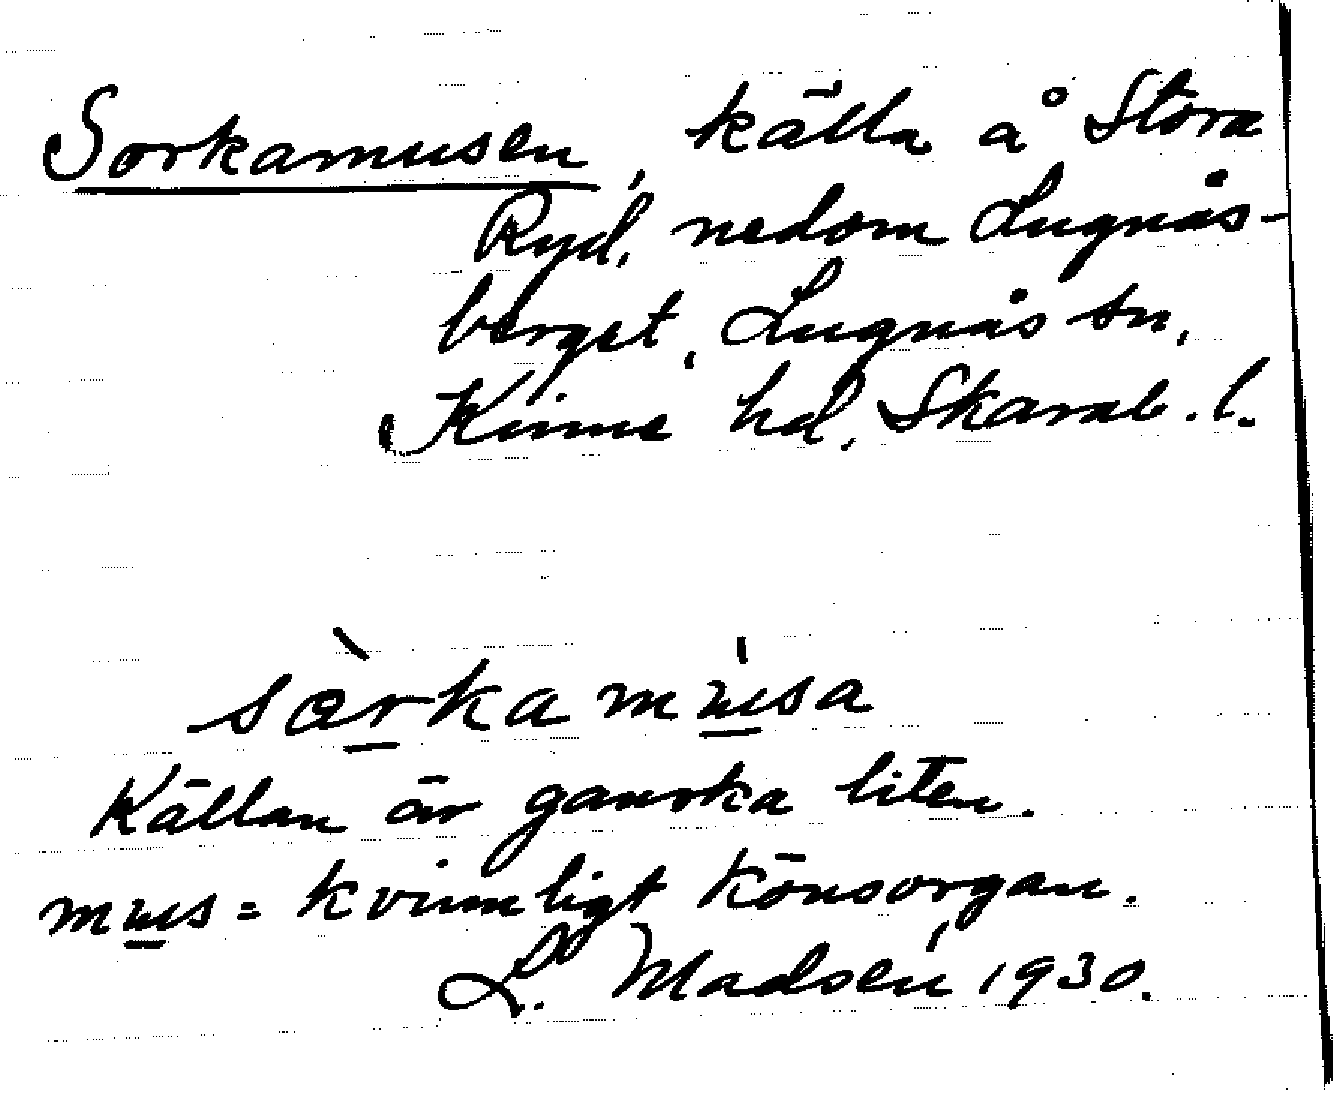 Sorkamusen, källa å Stora
Ryd, nedom Lugnås-
berget, Lugnås sn,
Kinne hd, Skarab. l.
sàrkamusa
Källan är ganska liten.
mus = kvinnligt könsorgan.
L. Madsén 1930.